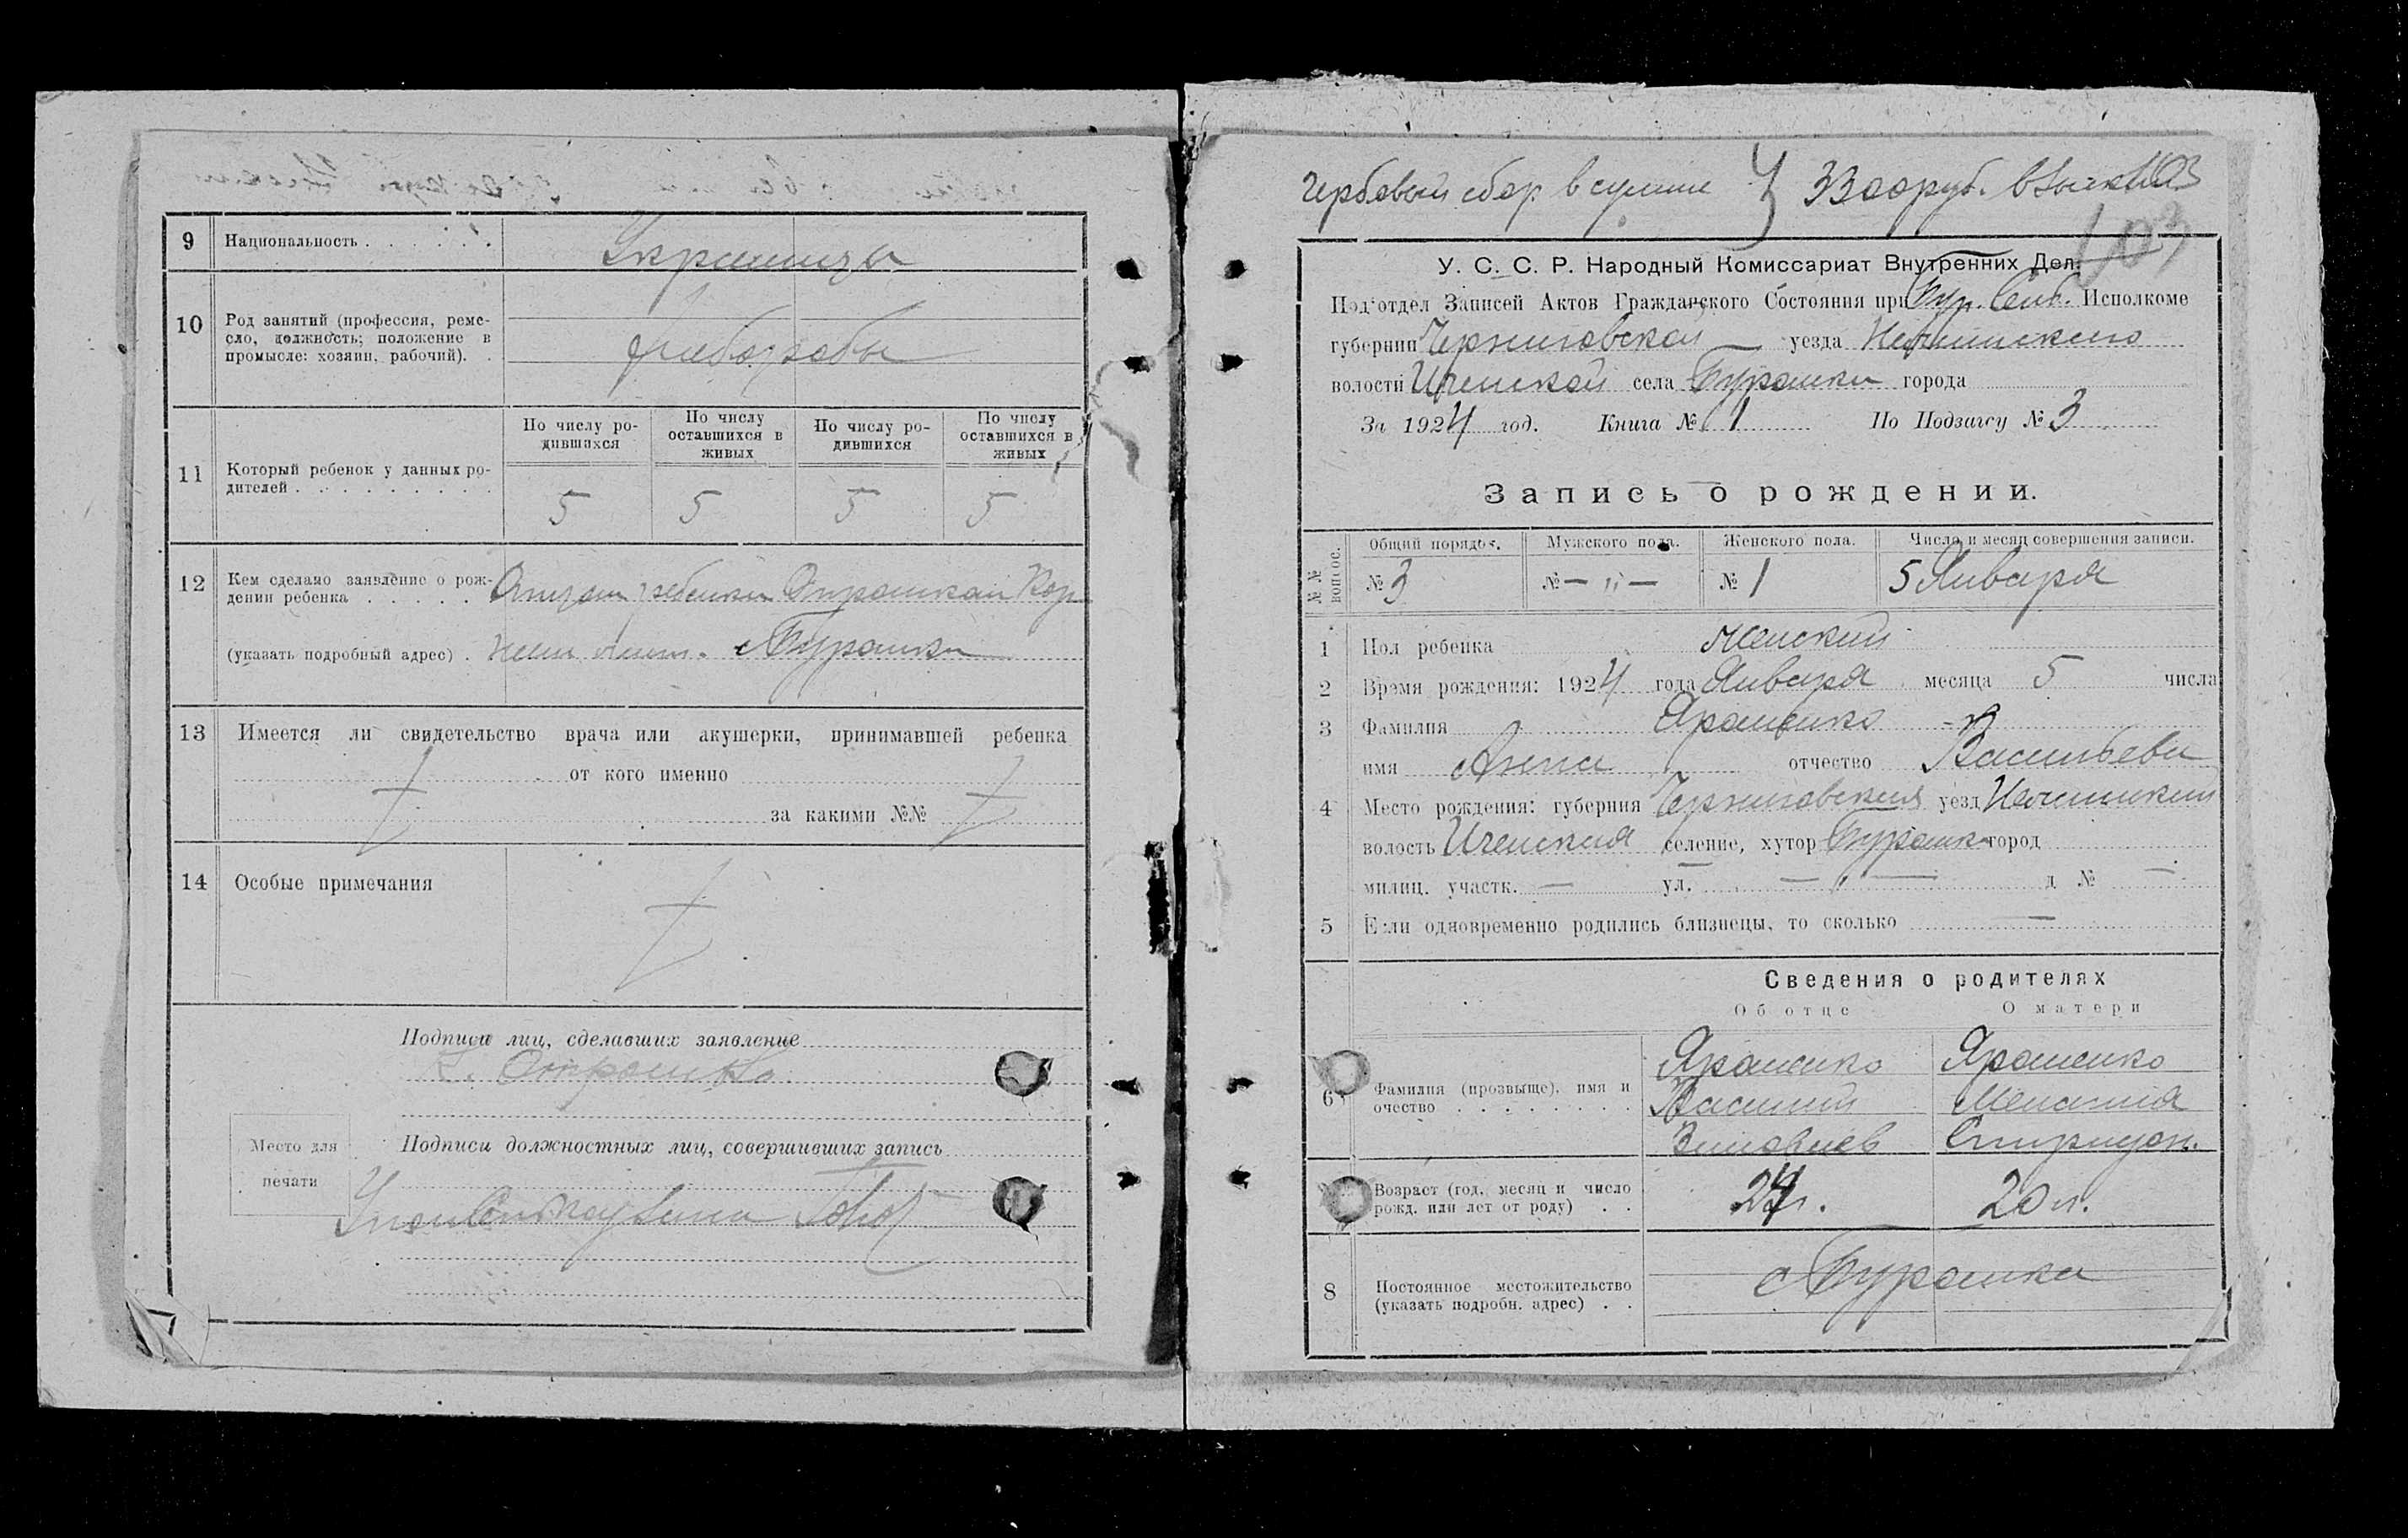 9 Национальность
Украинцы
10 Род занятий (профессия, реме-
сло, должность; положение в
промысле: хозяин, рабочий).
хлеборобы
11 Который ребенок у данных ро-
дителей
По числу ро-
дившихся
По числу
оставшихся в
живых
По числу ро-
дившихся
По числу
оставшихся в
живых
5 5 5 5
12 Кем сделано заявление о рож-
дении ребенка
(указать подробный адрес)
с Бурамки
13 Имеется ли свидетельство врача или акушерки, принимавшей ребенка
от кого именно
за какими №№
14 Особые примечания
Подписи лиц, сделавших заявление
Место для
печати
Подписи должностных лиц, совершивших запись
Гербовый сбор в сумме 3300 руб.
103
У. С. С. Р. Народный Комиссариат Внутренних Дел.
Под'отдел Записей Актов Гражданского Состояния при Бур. Сель. Исполкоме
губернии Черниговской уезда Нежинского
волости Иченской села Бурамки города
За 1924 год. Книга № 1 По Подзагсу № 3
Запись о рождении.
№ №
вопрос.
Общий порядок. Мужского пола. Женского пола. Число и месяц совершения записи.
№ 3 № — „ — № 1 5 Января
1 Пол ребенка женский
2 Время рождения: 1924 года Января месяца 5 числа
3 Фамилия Ярошенко
имя Анна отчество Васильева
4 Место рождения: губерния Черниговская уезд Нежинский
волость Иченская селение, хутор Бурамка город
милиц. участк. — ул. — д № —
5 Если одновременно родились близнецы, то сколько —
Сведения о родителях
Об отце О матери
6 Фамилия (прозвыще), имя и
очество
Ярошенко
Василий
Зиновиев
Ярошенко
Мелания
Спиридон.
Возраст (год, месяц и число
рожд. или лет от роду)
24 л. 20 л.
8 Постоянное местожительство
(указать подробн. адрес)
с Бурамка